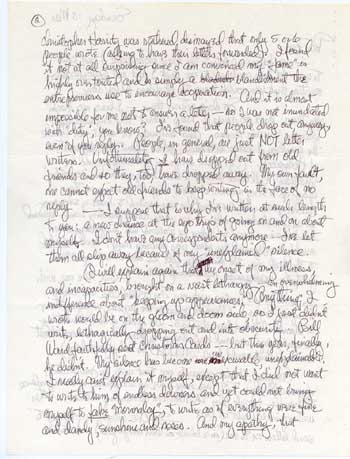 Christopher Harrity was surprised, dismayed that only 5 or 6
people wrote (asking to have their letters forwarded). I found
it not at all surprising since I am convinced my "fame" is
highly overstated and is simply a blandishment the
entrepreneurs use to encourage cooperation. And it is almost
impossible for me not to answer a letter — no I was not inundated
with any, you know? I've found that people drop out anyway,
even if you reply. People, in general, are just NOT letter
writers. Unfortunately I have dropped out from old
friends and so they, too, have dropped away. My own fault,
one cannot expect old friends to keep writing in the face of no
reply. — I suppose that is why I've written at such length
to you: a new chance at the ego trips of going on and on about
myself. I don't have any correspondents anymore. I've let
them all slip away because of my "unexplained" silence.
I will explain again that the onset of my illness,
and incapacities, brought on a weird lethargy — an overwhelming
indifference about "keeping up appearances." Anything I
wrote would be on the gloom and doom side, so I just didn't
write, lethargically dropping out and into obscurity. Bill
Ward faithfully sent Christmas Cards — but this year, finally,
he didn't. My silence has become inexcusable, unexplainable.
I really can't explain it myself, except that I did not want
to write to him of endless downers, and yet could not bring
myself to fake "normalcy", to write as if everything were fine
and dandy, sunshine and roses. And my apathy, that